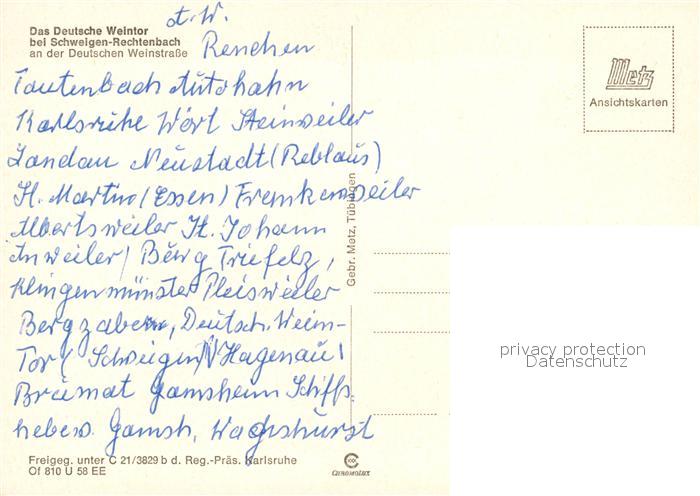 d. W.
Das Deutsche Weintor
bei Schweigen-Rechtenbach
an der Deutschen Weinstraße
Renchen
Tautenbach Autobahn
Karlsruhe Wört Steinweiler
Landau Neustadt (Reblaus)
St. Martin (Essen) Frenkenweiler
Albertsweiler St. Johann
Anweiler / Burg Triefelz,
Klingenmünster Pleisweiler
Bergzabern, Deutsch. Wein-
Tor ( Schweigen) Hagenau
Brümat Gamsheim Schiffs.
hebew. Gamsh, Wagshurst
Freigeg. unter C 21/3829 b d. Reg.-Präs. Karlsruhe
Of 810 U 58 EE
CHROMOLUX
Gebr. Metz, Tübingen
Metz
Ansichtskarten
privacy protection
Datenschutz